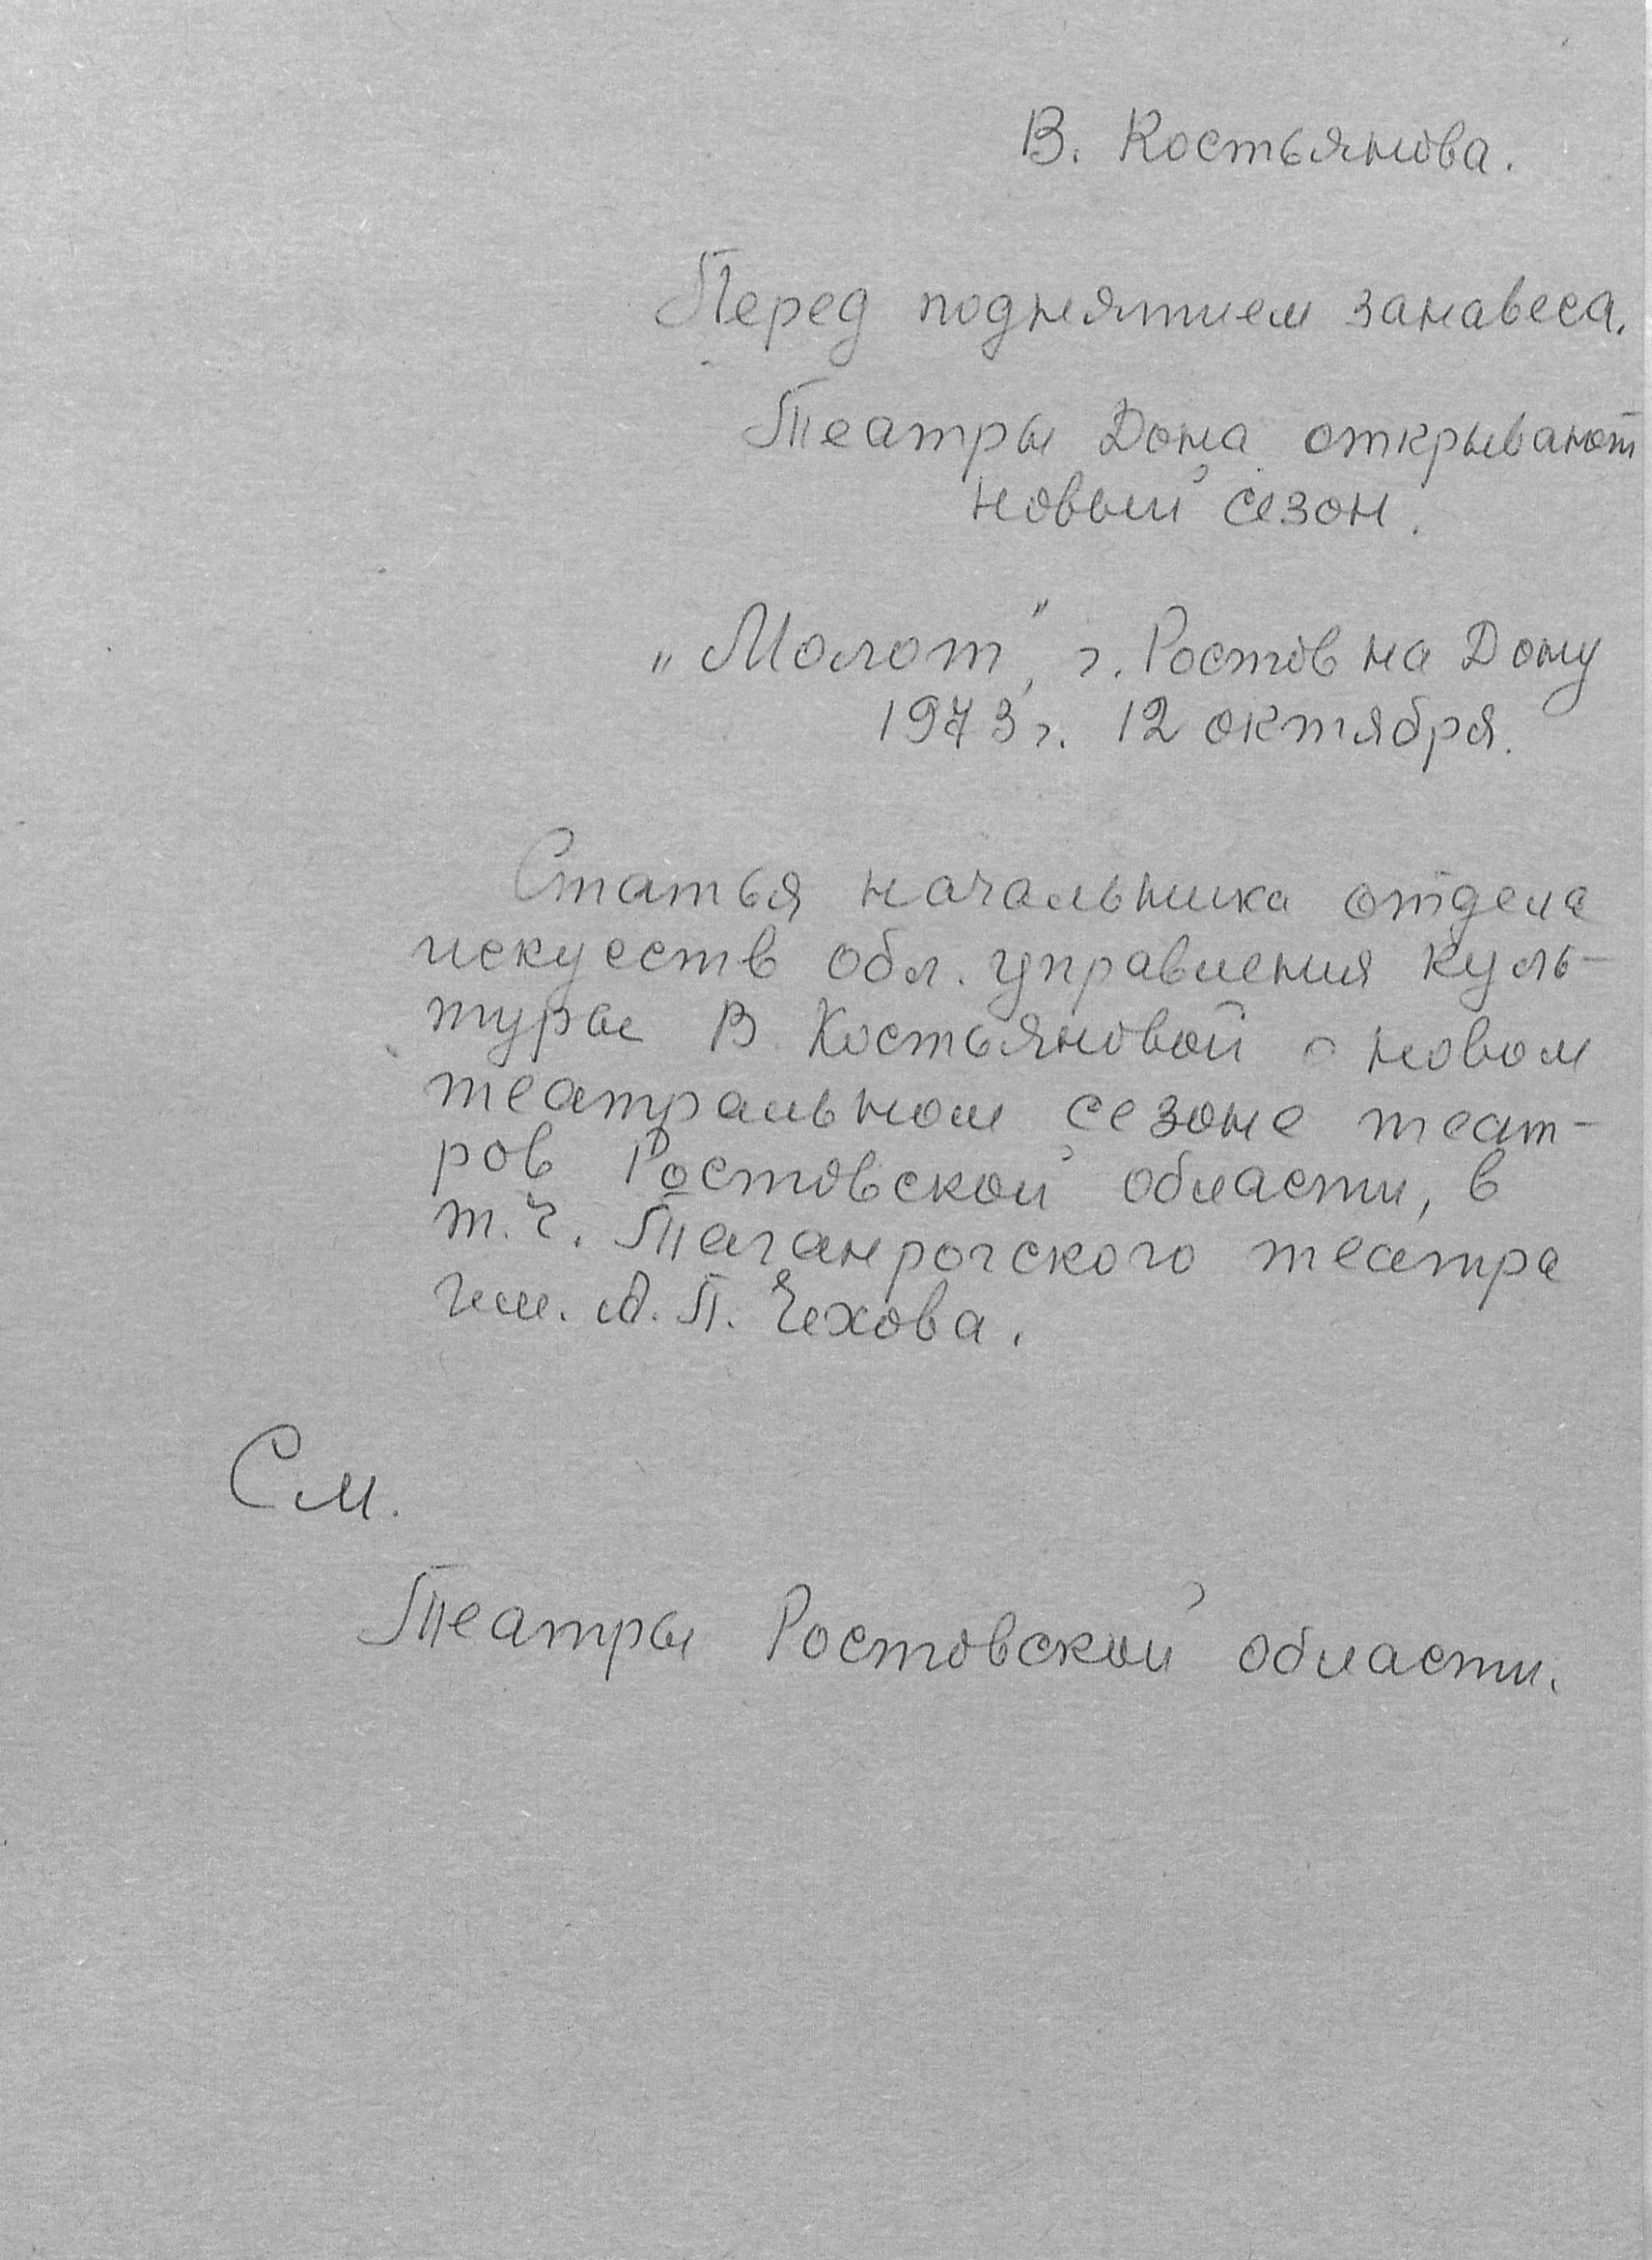 В. Костьянова.
Перед поднятием занавеса.
Театры Дона открывают
новый сезон.
„Молот", г. Ростов на Дону
1973 г. 12 октября.
Статья начальника отдела
искусств обл. управления куль-
туры В. Костьяновой о новом
театральном сезоне теат-
ров Ростовской области, в
т. ч. Таганрогского театра
им. А. П. Чехова.
См.
Театры Ростовской области.